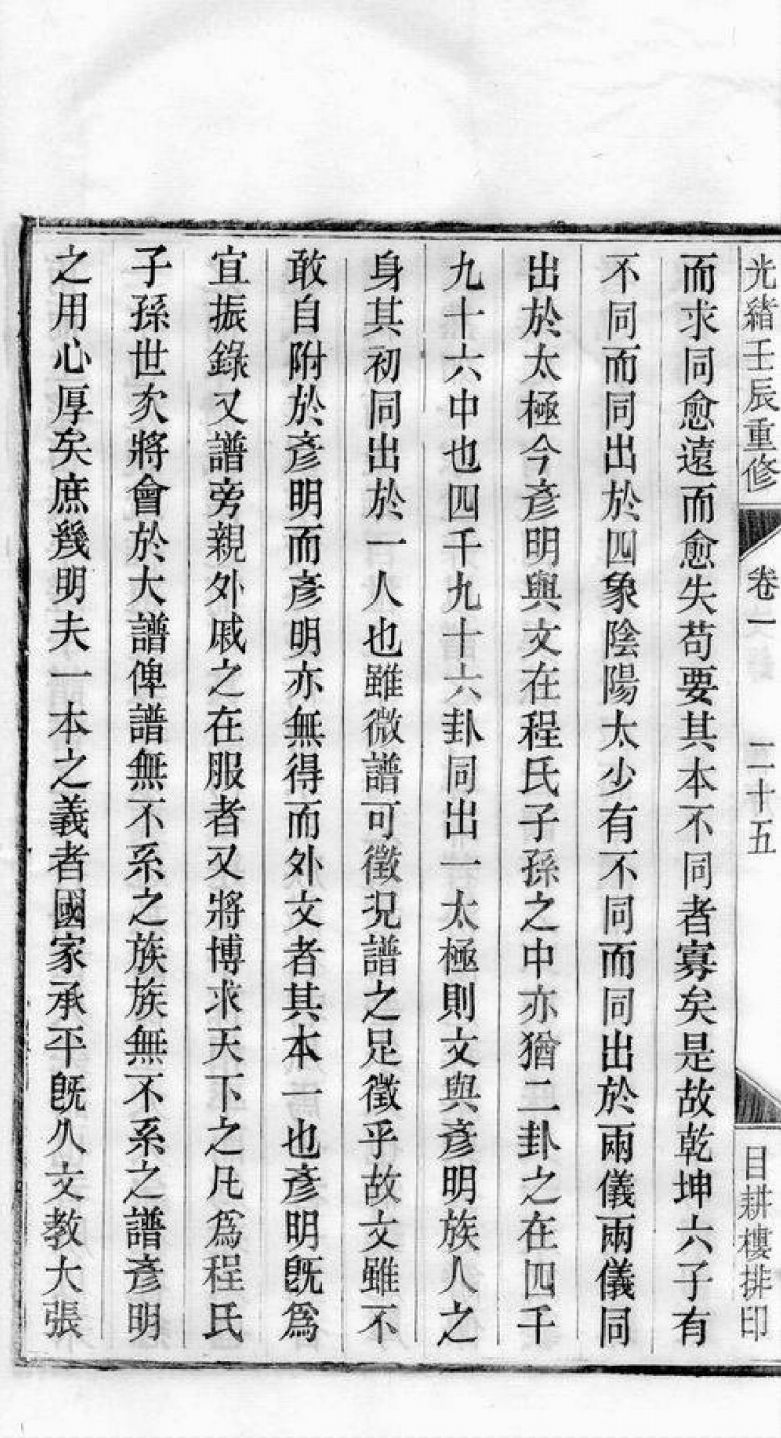 光緒壬辰重修 卷一 二十五 目耕樓排印
而求同愈遠而愈失苟要其本不同者寡矣是故乾坤六子有
不同而同出於四象陰陽太少有不同而同出於兩儀兩儀同
出於太極今彥明與文在程氏子孫之中亦猶二卦之在四千
九十六中也四千九十六卦同出一太極則文與彥明族人之
身其初同出於一人也雖微譜可徵況譜之足徵乎故文雖不
敢自附於彥明而彥明亦無得而外文者其本一也彥明旣爲
宜振錄又譜旁親外戚之在服者又將博求天下之凡爲程氏
子孫世次將會於大譜俾譜無不系之族族無不系之譜彥明
之用心厚矣庶幾明夫一本之義者國家承平旣久文教大張